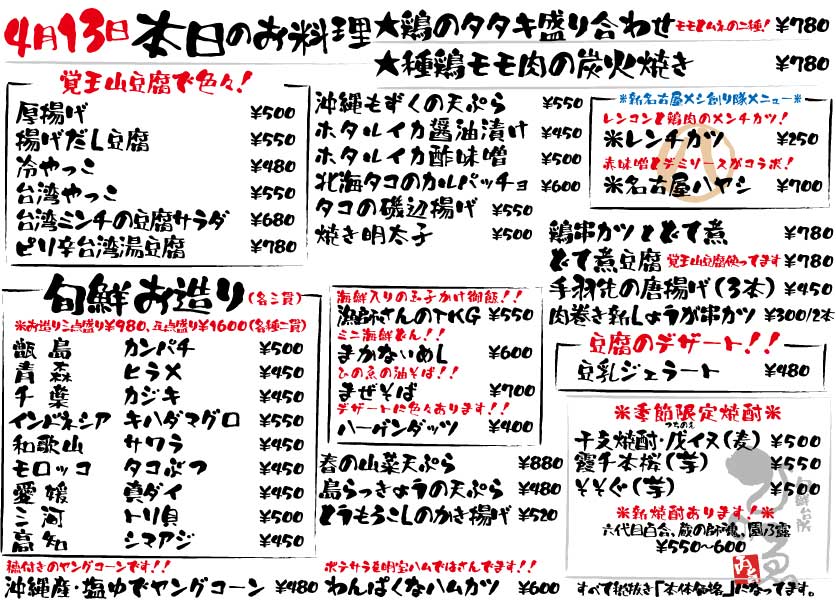 4月13日 本日のお料理
★鶏のタタキ盛り合わせ モモとムネの二種! ¥780
★種鶏モモ肉の炭火焼き ¥780
覚王山豆腐で色々!
厚揚げ ¥500
揚げだし豆腐 ¥550
冷やっこ ¥480
台湾やっこ ¥550
台湾ミンチの豆腐サラダ ¥680
ピリ辛台湾湯豆腐 ¥780
沖縄もずくの天ぷら ¥550
ホタルイカ醤油漬け ¥450
ホタルイカ酢味噌 ¥500
北海タコのカルパッチョ ¥600
タコの磯辺揚げ ¥550
焼き明太子 ¥500
※新名古屋メシ創り隊メニュー※
レンコンと鶏肉のメンチカツ!
※レンチカツ ¥250
赤味噌とデミソースがコラボ!
※名古屋ハヤシ ¥700
鶏串カツとどて煮 ¥780
どて煮豆腐 覚王山豆腐使ってます ¥780
手羽先の唐揚げ(3本) ¥450
肉巻き新しょうが串カツ ¥300/2本
旬鮮お造り(各三貫)
※お造り三点盛り¥980、五点盛り¥1600(各種二貫)
甑島 カンパチ ¥500
青森 ヒラメ ¥450
千葉 カジキ ¥450
インドネシア キハダマグロ ¥550
和歌山 サワラ ¥450
モロッコ タコぶつ ¥450
愛媛 真ダイ ¥450
三河 トリ貝 ¥500
高知 シマアジ ¥450
海鮮入りの玉子かけ御飯!!
漁師さんのTKG ¥550
ミニ海鮮どん!!
まかないめし ¥600
ひの魚の油そば!!
まぜそば ¥700
デザートに色々あります!!
ハーゲンダッツ ¥400
春の山菜天ぷら ¥880
島らっきょうの天ぷら ¥480
とうもろこしのかき揚げ ¥520
豆腐のデザート!!
豆乳ジェラート ¥480
※季節限定焼酎※
つちのえ
干支焼酎・戊イヌ(麦) ¥500
霞千本桜(芋) ¥550
そそぐ(芋) ¥500
※新焼酎あります!※
六代目百合、蔵の師魂、園乃露
¥550~600
穂付きのヤングコーンです!!
沖縄産・塩ゆでヤングコーン ¥480
ポテサラを明宝ハムではさんでます!!
わんぱくなハムカツ ¥600
すべて税抜き「本体価格」になってます。